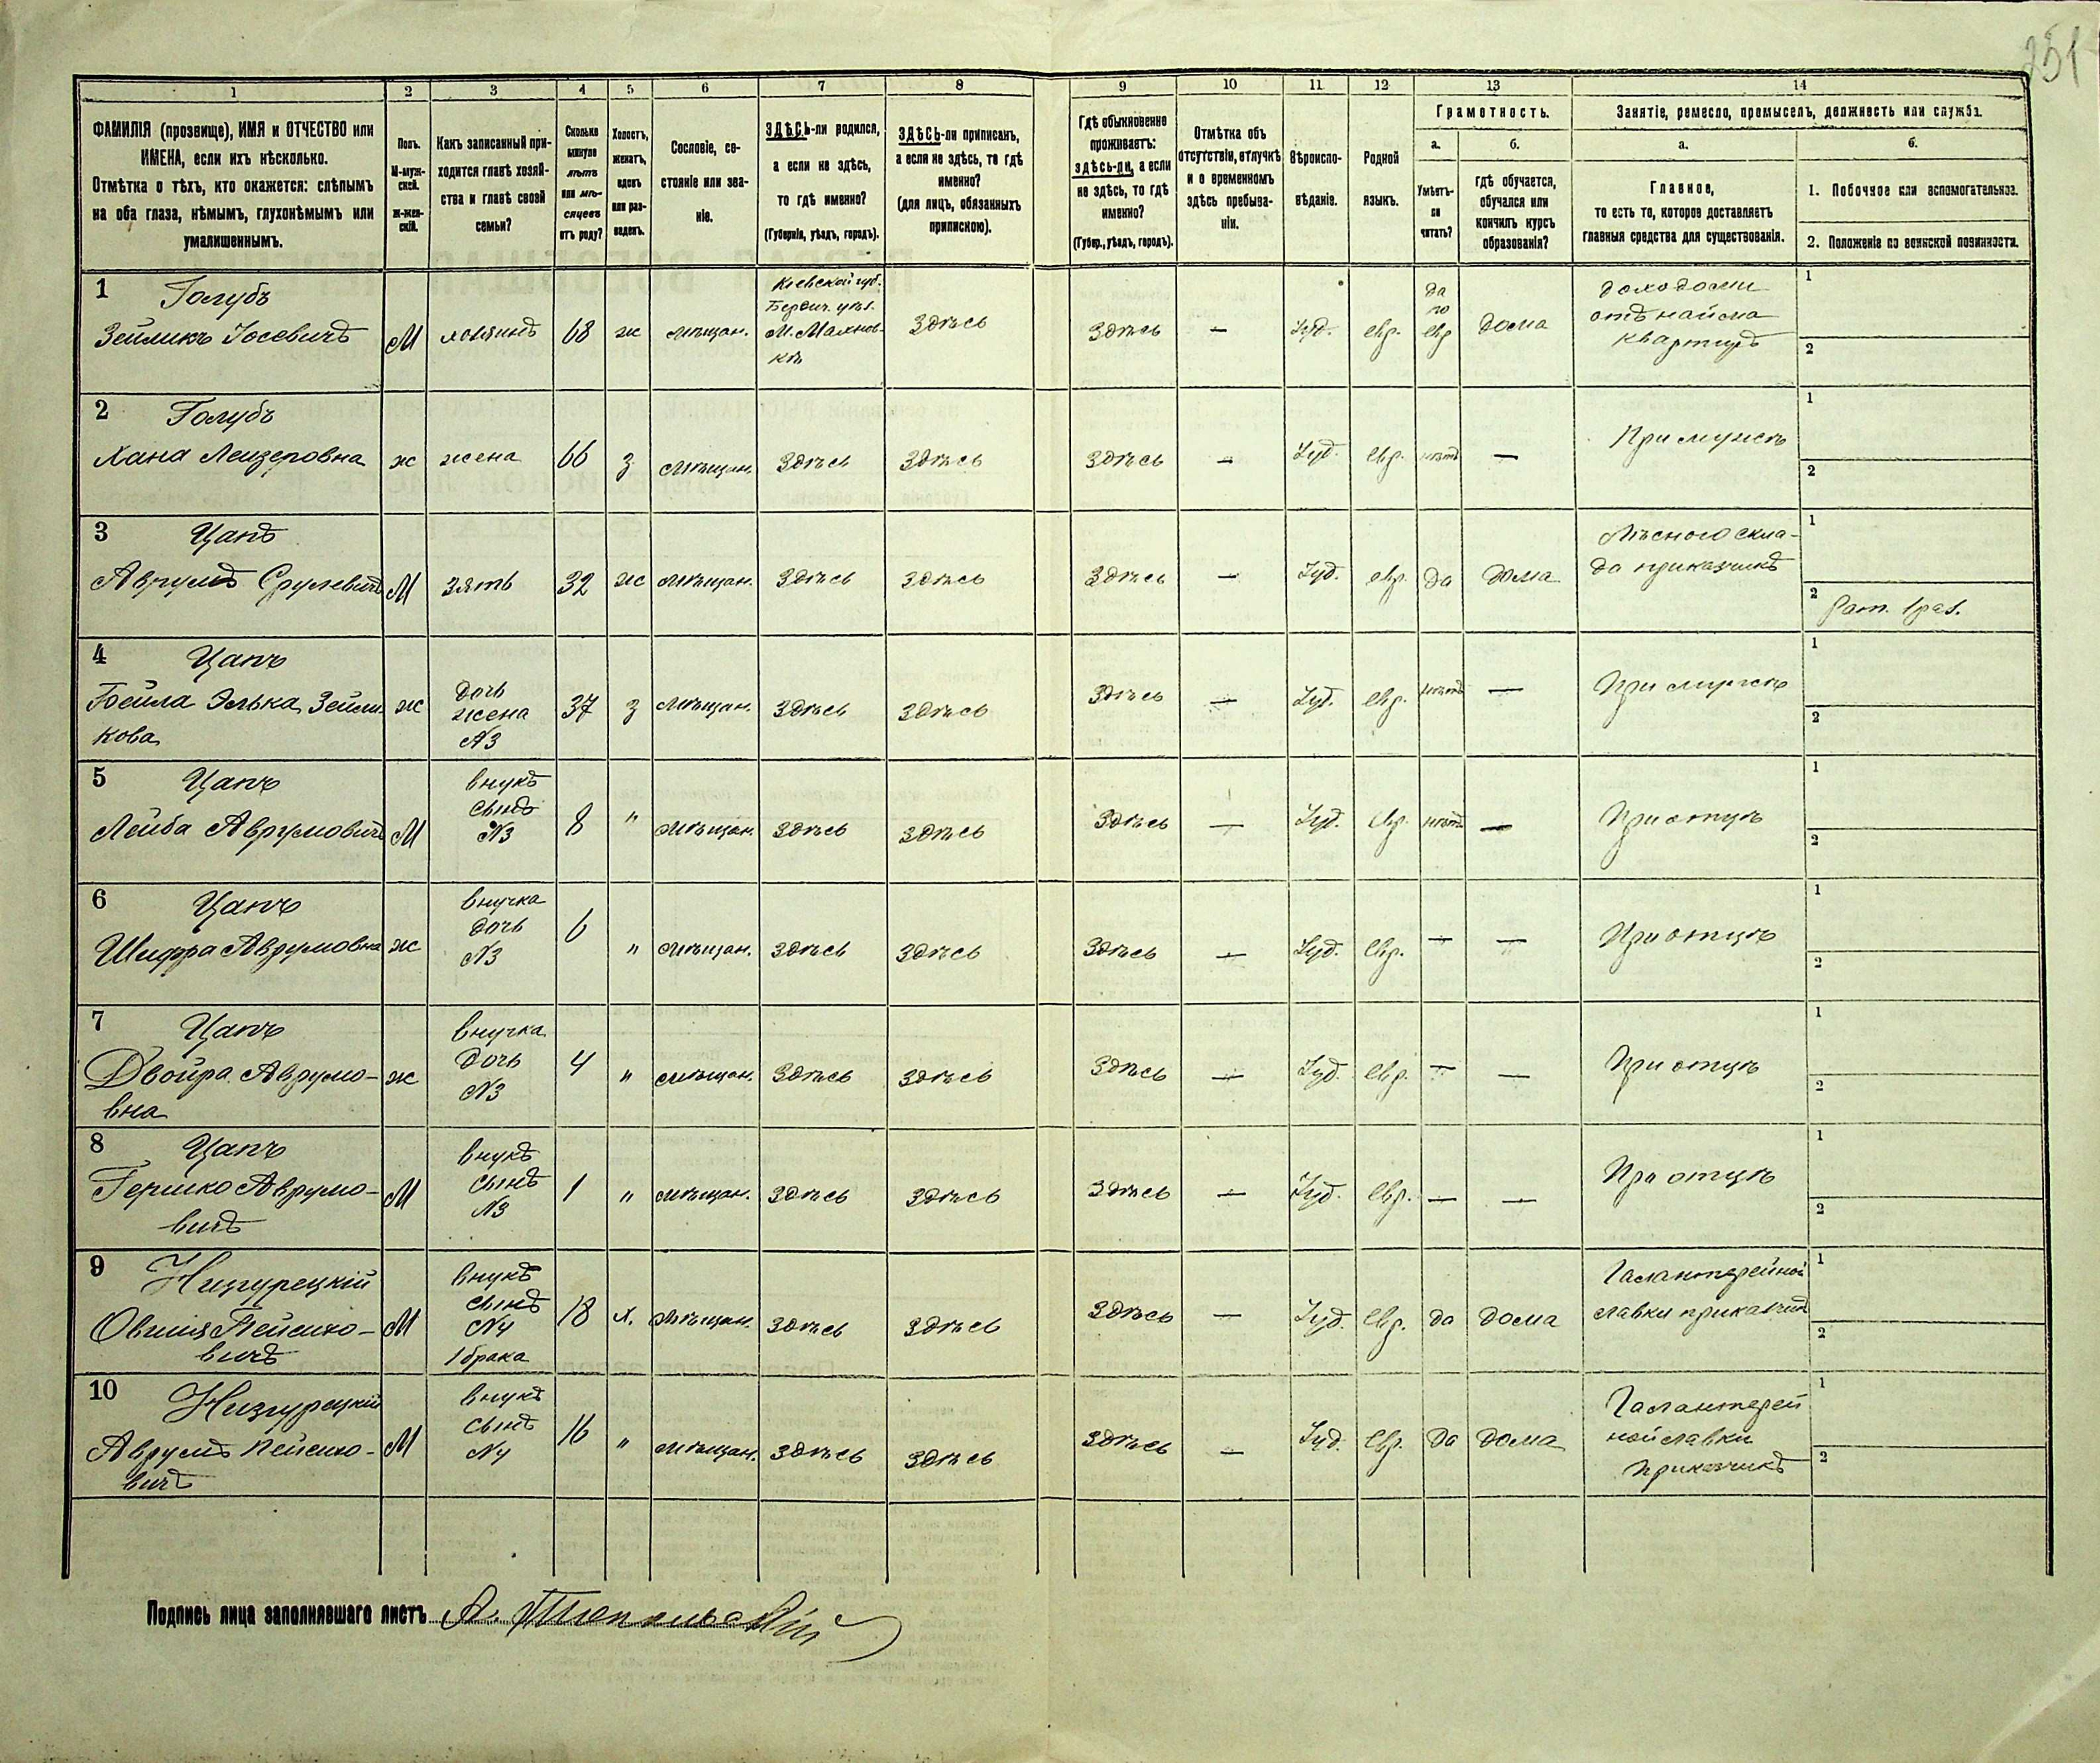 251
1 2 3 4 5 6 7 8 9 10 11 12 13 14
ФАМИЛІЯ (прозвище), ИМЯ и ОТЧЕСТВО или
ИМЕНА, если ихъ нѣсколько.
Отмѣтка о тѣхъ, кто окажется: слѣпымъ
на оба глаза, нѣмымъ, глухонѣмымъ или
умалишеннымъ.
Полъ.
М-муж-
ской.
Ж-жен-
скій.
Какъ записанный при-
ходится главѣ хозяй-
ства и главѣ своей
семьи?
Сколько
минуло
лѣтъ
или мѣ-
сяцевъ
отъ роду?
Холостъ,
женатъ,
вдовъ
или раз-
веденъ.
Сословіе, со-
стояніе или зва-
ніе.
ЗДѢСЬ-ли родился,
а если не здѣсь,
то гдѣ именно?
(Губернія, уѣздъ, городъ).
ЗДѢСЬ-ли приписанъ,
а если не здѣсь, то гдѣ
именно?
(для лицъ, обязанныхъ
припискою).
Гдѣ обыкновенно
проживаетъ:
здѣсь-ли, а если
не здѣсь, то гдѣ
именно?
(Губер., уѣздъ, городъ).
Отмѣтка объ
отсутствіи, отлучкѣ
и о временномъ
здѣсь пребыва-
ніи.
Вѣроиспо-
вѣданіе.
Родной
языкъ.
Грамотность.
а.
Умѣетъ-
ли
читать?
б.
гдѣ обучается,
обучался или
кончилъ курсъ
образованія?
Занятіе, ремесло, промыселъ, должность или служба.
а.
Главное,
то есть то, которое доставляетъ
главныя средства для существованія.
б.
1. Побочное или вспомогательное.
2. Положеніе по воинской повинности.
1 Голубъ
Зейликъ Іосевичъ
М
хозяинъ
68
ж
мѣщан.
Кіевской губ.
Бердич. уѣз.
М. Махнов-
кѣ
Здѣсь
Здѣсь
—
Іуд.
евр.
да
по
евр
дома
доходами
отъ найма
квартиръ
1
2
2 Голубъ
Хана Лейзеровна
ж
жена
66
з
мѣщан.
Здѣсь
Здѣсь
Здѣсь
—
Іуд.
евр.
нѣтъ
—
При мужѣ
1
2
3 Цапъ
Аврумъ Срулевичъ
М
зять
32
ж
мѣщан.
Здѣсь
Здѣсь
Здѣсь
—
Іуд.
евр.
да
дома
Лѣсного скла-
да приказчикъ
1
2 Рат. 1 раз.
4 Цапъ
Бейла Элька Зейли-
кова
ж
дочь
жена
№3
37
з
мѣщан.
Здѣсь
Здѣсь
Здѣсь
—
Іуд.
евр.
нѣтъ
—
При мужѣ
1
2
5 Цапъ
Лейба Аврумовичъ
М
внукъ
сынъ
№3
8
"
мѣщан.
Здѣсь
Здѣсь
Здѣсь
—
Іуд.
евр.
нѣтъ
—
При отцѣ
1
2
6 Цапъ
Шифра Аврумовна
ж
внучка
дочь
№3
6
"
мѣщан.
Здѣсь
Здѣсь
Здѣсь
—
Іуд.
евр.
—
—
При отцѣ
1
2
7 Цапъ
Двойра Аврумо-
вна
ж
внучка
дочь
№3
4
"
мѣщан.
Здѣсь
Здѣсь
Здѣсь
—
Іуд.
евр.
—
—
При отцѣ
1
2
8 Цапъ
Гершко Аврумо-
вичъ
М
внукъ
сынъ
№3
1
"
мѣщан.
Здѣсь
Здѣсь
Здѣсь
—
Іуд.
евр.
—
—
При отцѣ
1
2
9 Низгурецкій
Овшія Пейсихо-
вичъ
М
внукъ
сынъ
№4
1 брака
18
х.
мѣщан.
Здѣсь
Здѣсь
Здѣсь
—
Іуд.
евр.
да
дома
Галантерейной
лавки приказчикъ
1
2
10 Низгурецкій
Аврумъ Пейсихо-
вичъ
М
внукъ
сынъ
№4
16
"
мѣщан.
Здѣсь
Здѣсь
Здѣсь
—
Іуд.
евр.
да
дома
Галантерей
ной лавки
приказчикъ
1
2
Подпись лица заполнявшаго листъ А.